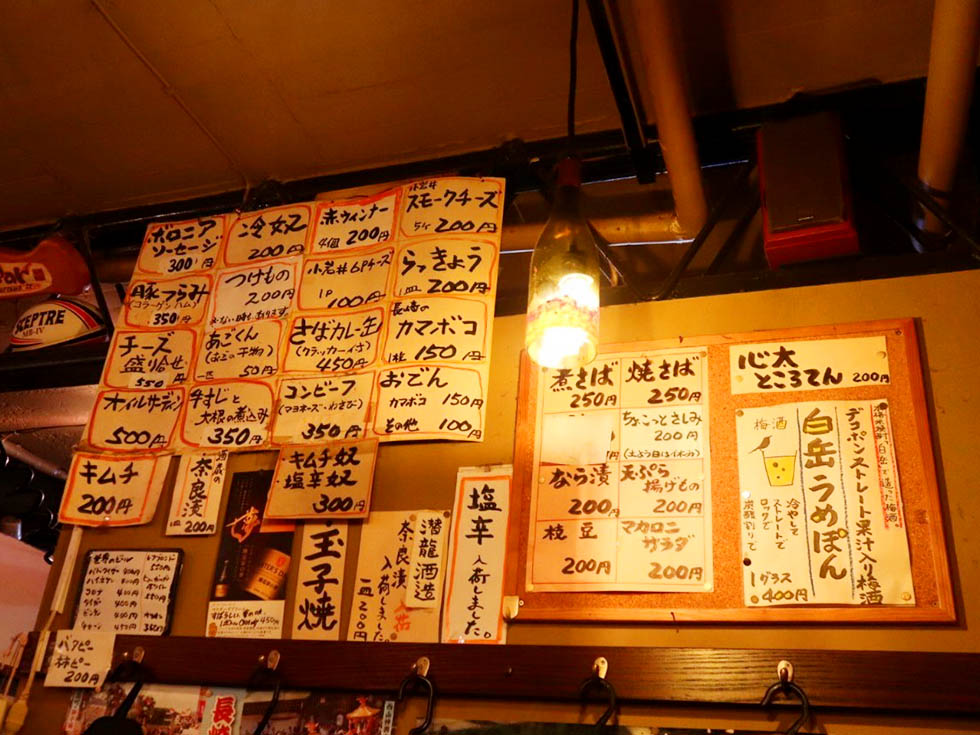 ボロニア
ソーセージ
300円
冷奴
200円
赤ウィンナー
4個 200円
小岩井
スモークチーズ
5ケ 200円
豚つらみ
(コラーゲンハム)
350円
つけもの
200円
小岩井6Pチーズ
1P 100円
らっきょう
一皿 200円
チーズ
盛り合せ
550円
あごくん
(あごの干物)
50円
さばカレー缶
(クラッカー付き)
450円
長崎の
カマボコ
1枚 150円
オイルサーディン
500円
牛すじと
大根の煮込み
350円
コンビーフ
(マヨネーズ・わさび)
350円
おでん
カマボコ 150円
その他 100円
キムチ
200円
酒蔵の
奈良漬
200円
キムチ奴
塩辛奴
300円
玉子焼
潜龍酒造
奈良漬
入荷しました
一皿 200円
塩辛 入荷しました。
世界のビール
バドワイザー 400円
ハイネケン 400円
コロナ 400円
タイガー 400円
450円
550円
550円
350円
バタピー
柿ピー
200円
SCEPTRE
煮さば
250円
焼さば
250円
ちょこっとさしみ
200円
なら漬
200円
天ぷら
揚げもの
200円
枝豆
200円
マカロニ
サラダ
200円
心太
ところてん 200円
デコポンストレート果汁入り梅酒
白岳うめぽん
梅酒
冷やして
ストレートで
ロックで
炭酸割りで
1グラス
400円